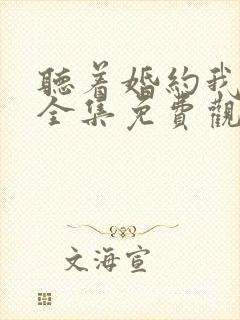 聽着婚約我
全集免費觀
文海宣